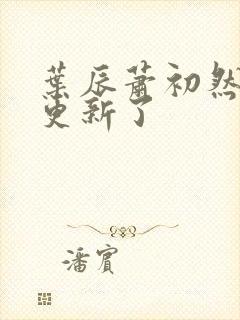 葉辰蕭初然
更新了
潘賓